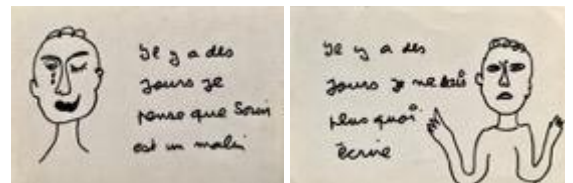 Il y a des
jours je
pense que
est un malin
Il y a des
jours je ne sais
plus quoi
écrire